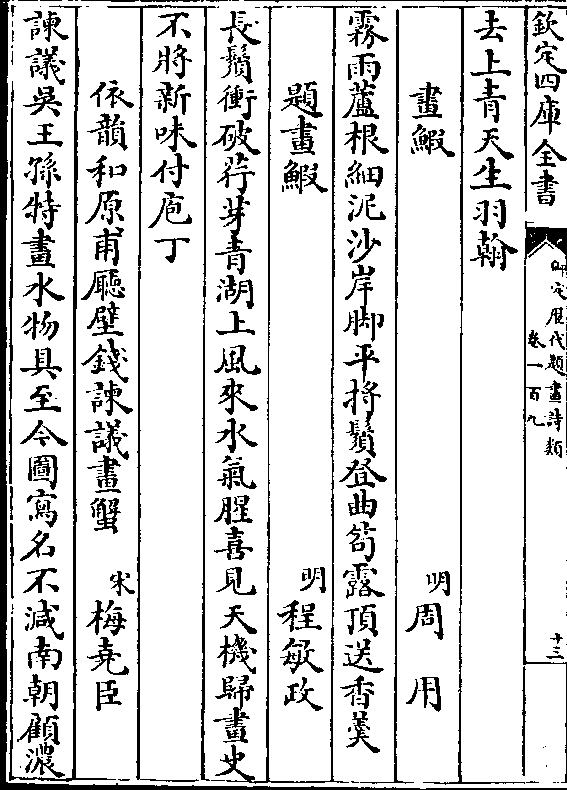 欽定四庫全書
御定歷代題畫詩類
卷一百九
十三
去上青天生羽翰
畫鰕
明
周用
霧雨蘆根細泥沙岸脚平捋鬚登曲笱露頂送香羮
題畫鰕
明
程敏政
長鬚衝破荇芽青湖上風來水氣腥喜見天機歸畫史
不將新味付庖丁
依韻和原甫廳壁錢諫議畫蟹
宋
梅堯臣
諫議吳王孫特畫水物具至今圖寫名不減南朝顧濃